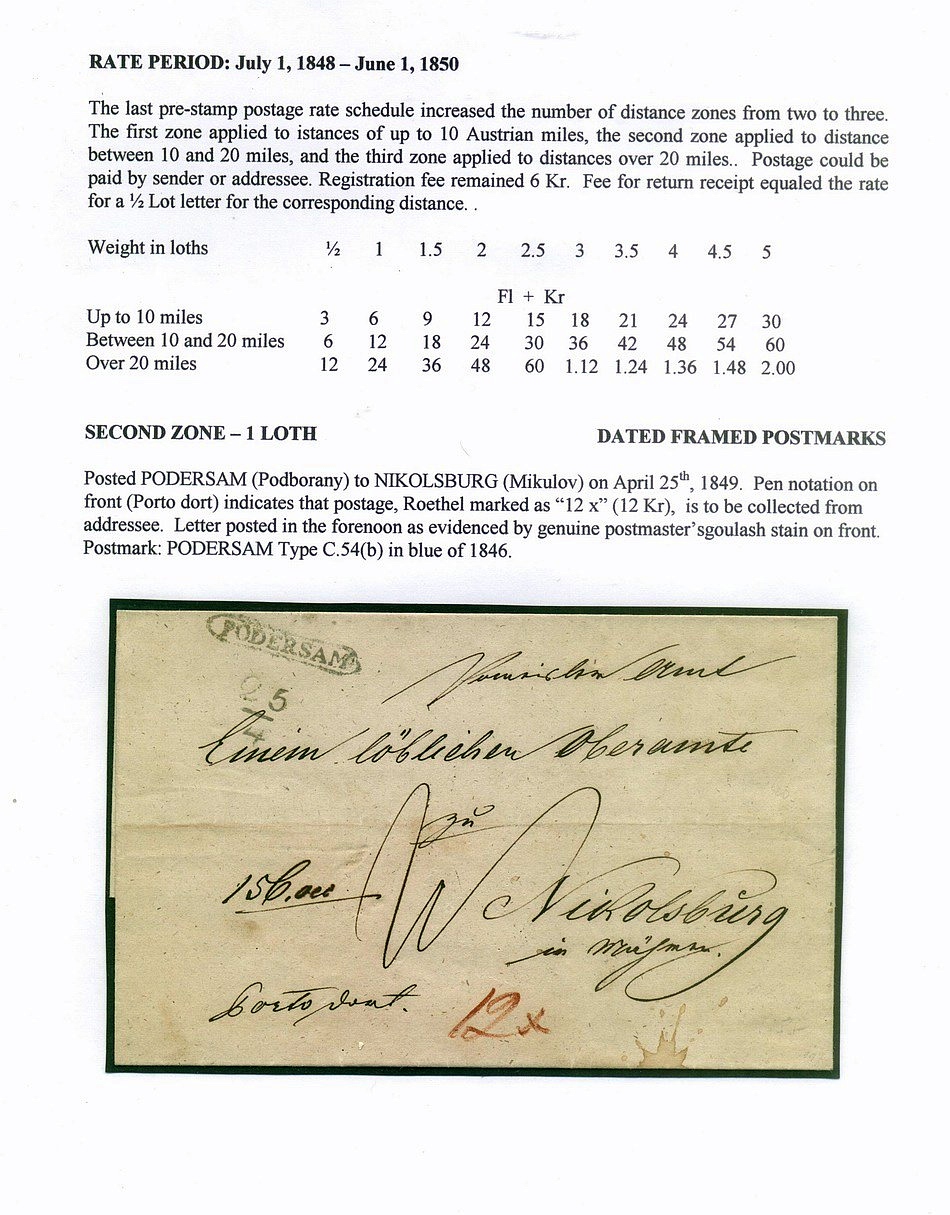 RATE PERIOD: July 1, 1848 – June 1, 1850
The last pre-stamp postage rate schedule increased the number of distance zones from two to three.
The first zone applied to istances of up to 10 Austrian miles, the second zone applied to distance
between 10 and 20 miles, and the third zone applied to distances over 20 miles.. Postage could be
paid by sender or addressee. Registration fee remained 6 Kr. Fee for return receipt equaled the rate
for a ½ Lot letter for the corresponding distance. .
Weight in loths ½ 1 1.5 2 2.5 3 3.5 4 4.5 5
Fl + Kr
Up to 10 miles 3 6 9 12 15 18 21 24 27 30
Between 10 and 20 miles 6 12 18 24 30 36 42 48 54 60
Over 20 miles 12 24 36 48 60 1.12 1.24 1.36 1.48 2.00
SECOND ZONE – 1 LOTH DATED FRAMED POSTMARKS
Posted PODERSAM (Podborany) to NIKOLSBURG (Mikulov) on April 25th, 1849. Pen notation on
front (Porto dort) indicates that postage, Roethel marked as “12 x” (12 Kr), is to be collected from
addressee. Letter posted in the forenoon as evidenced by genuine postmaster'sgoulash stain on front.
Postmark: PODERSAM Type C.54(b) in blue of 1846.
PODERSAM
Amt
25
4
Einem löblichen Oberamte
zu
Nikolsburg
in Mähren.
Porto dort.
12x